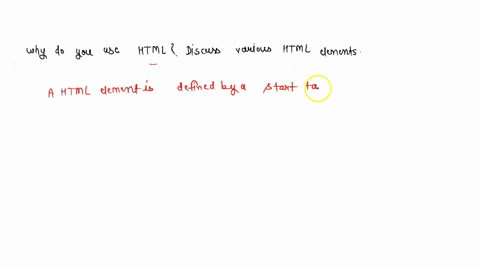 why do you use HTML? Discuss various HTML elements.
A HTML element is defined by a start ta